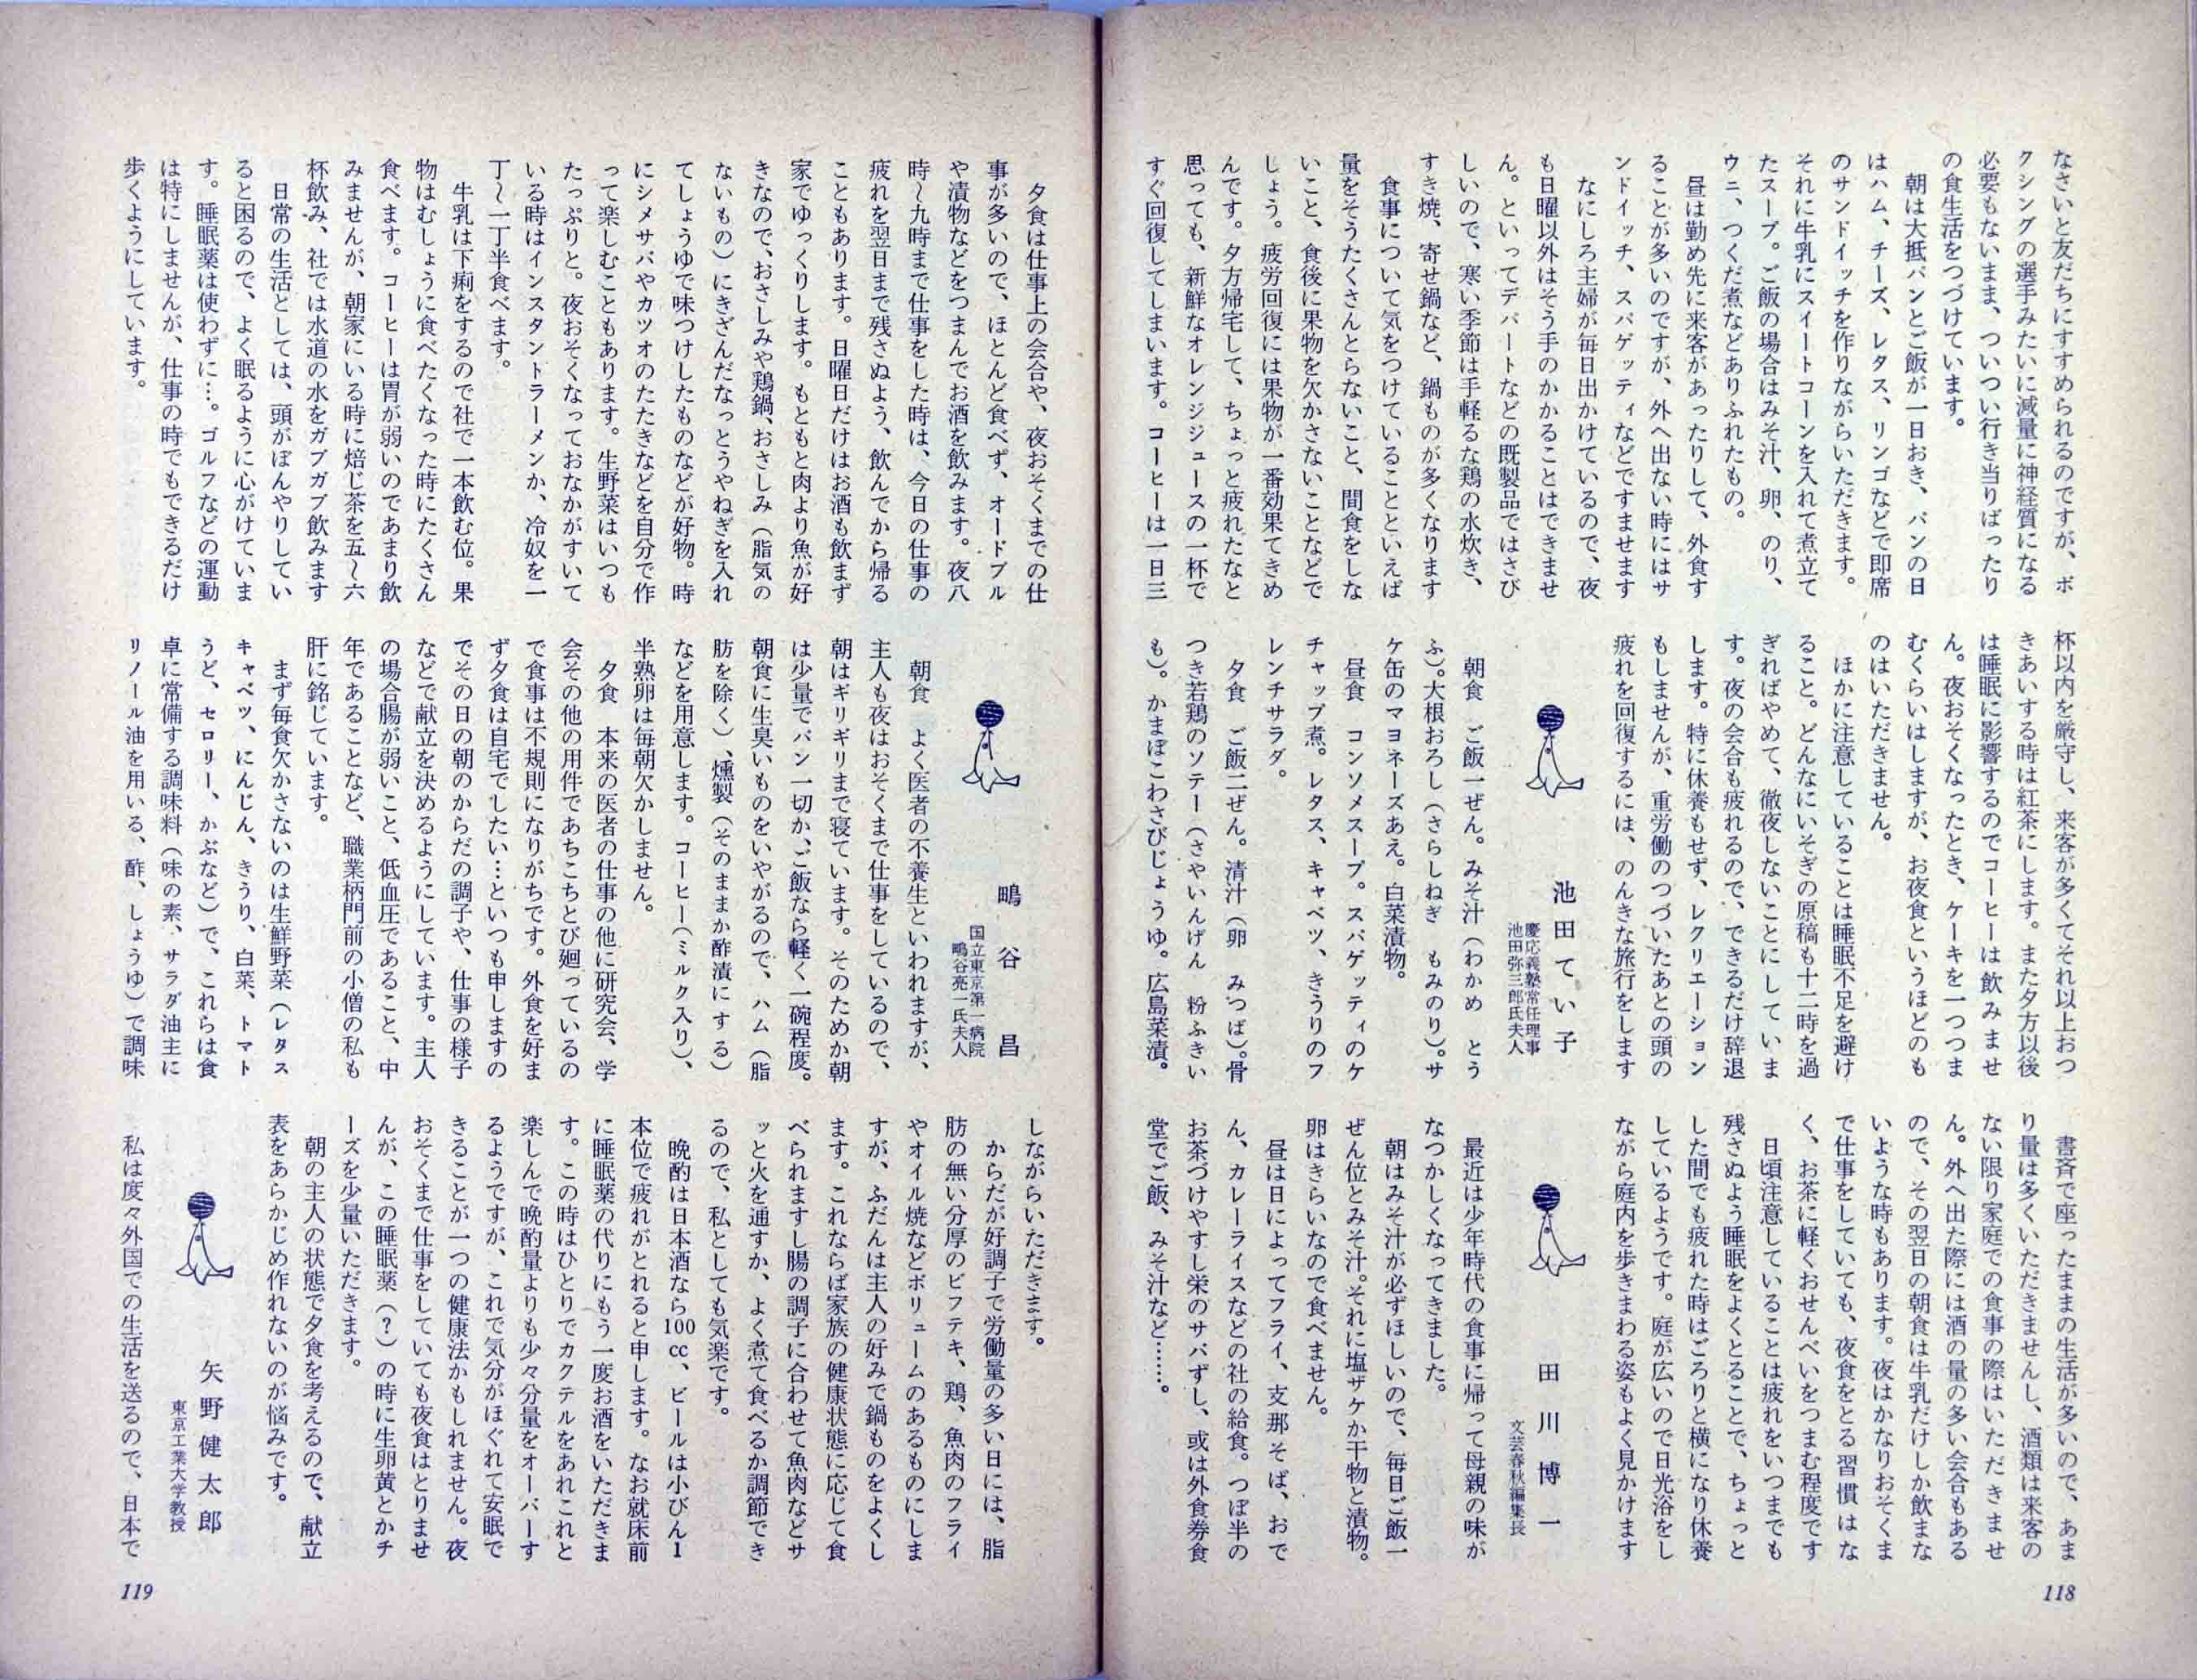 なさいと友だちにすすめられるのですが、ボ
クシングの選手みたいに減量に神経質になる
必要もないまま、ついつい行き当りばったり
の食生活をつづけています。
朝は大抵パンとご飯が一日おき、パンの日
はハム、チーズ、レタス、リンゴなどで即席
のサンドイッチを作りながらいただきます。
それに牛乳にスイートコーンを入れて煮立て
たスープ。ご飯の場合はみそ汁、卵、のり、
ウニ、つくだ煮などありふれたもの。
昼は勤め先に来客があったりして、外食す
ることが多いのですが、外へ出ない時にはサ
ンドイッチ、スパゲッティなどですませます
なにしろ主婦が毎日出かけているので、夜
も日曜以外はそう手のかかることはできませ
ん。といってデパートなどの既製品ではさび
しいので、寒い季節は手軽るな鶏の水炊き、
すき焼、寄せ鍋など、鍋ものが多くなります
食事について気をつけていることといえば
量をそうたくさんとらないこと、間食をしな
いこと、食後に果物を欠かさないことなどで
しょう。疲労回復には果物が一番効果てきめ
んです。夕方帰宅して、ちょっと疲れたなと
思っても、新鮮なオレンジジュースの一杯で
すぐ回復してしまいます。コーヒーは一日三
杯以内を厳守し、来客が多くてそれ以上おつ
きあいする時は紅茶にします。また夕方以後
は睡眠に影響するのでコーヒーは飲みませ
ん。夜おそくなったとき、ケーキを一つつま
むくらいはしますが、お夜食というほどのも
のはいただきません。
ほかに注意していることは睡眠不足を避け
ること。どんなにいそぎの原稿も十二時を過
ぎればやめて、徹夜しないことにしていま
す。夜の会合も疲れるので、できるだけ辞退
します。特に休養もせず、レクリエーション
もしませんが、重労働のつづいたあとの頭の
疲れを回復するには、のんきな旅行をします
池田てい子
慶応義塾常任理事
池田弥三郎氏夫人
朝食　ご飯一ぜん。みそ汁（わかめ　とう
ふ）。大根おろし（さらしねぎ　もみのり）。サ
ケ缶のマヨネーズあえ。白菜漬物。
昼食　コンソメスープ。スパゲッティのケ
チャップ煮。レタス、キャベツ、きうりのフ
レンチサラダ。
夕食　ご飯二ぜん。清汁（卵　みつば）。骨
つき若鶏のソテー（さやいんげん　粉ふきい
も）。かまぼこわさびじょうゆ。広島菜漬。
書斉で座ったままの生活が多いので、あま
り量は多くいただきませんし、酒類は来客の
ない限り家庭での食事の際はいただきませ
ん。外へ出た際には酒の量の多い会合もある
ので、その翌日の朝食は牛乳だけしか飲まな
いような時もあります。夜はかなりおそくま
で仕事をしていても、夜食をとる習慣はな
く、お茶に軽くおせんべいをつまむ程度です
日頃注意していることは疲れをいつまでも
残さぬよう睡眠をよくとることで、ちょっと
した間でも疲れた時はごろりと横になり休養
しているようです。庭が広いので日光浴をし
ながら庭内を歩きまわる姿もよく見かけます
田川博一
文芸春秋編集長
最近は少年時代の食事に帰って母親の味が
なつかしくなってきました。
朝はみそ汁が必ずほしいので、毎日ご飯一
ぜん位とみそ汁。それに塩ザケか干物と漬物。
卵はきらいなので食べません。
昼は日によってフライ、支那そば、おで
ん、カレーライスなどの社の給食。つぼ半の
お茶づけやすし栄のサバずし、或は外食券食
堂でご飯、みそ汁など……。
118
夕食は仕事上の会合や、夜おそくまでの仕
事が多いので、ほとんど食べず、オードブル
や漬物などをつまんでお酒を飲みます。夜八
時～九時まで仕事をした時は、今日の仕事の
疲れを翌日まで残さぬよう、飲んでから帰る
こともあります。日曜日だけはお酒も飲まず
家でゆっくりします。もともと肉より魚が好
きなので、おさしみや鶏鍋、おさしみ（脂気の
ないもの）にきざんだなっとうやねぎを入れ
てしょうゆで味つけしたものなどが好物。時
にシメサバやカツオのたたきなどを自分で作
って楽しむこともあります。生野菜はいつも
たっぷりと。夜おそくなっておなかがすいて
いる時はインスタントラーメンか、冷奴を一
丁～一丁半食べます。
牛乳は下痢をするので社で一本飲む位。果
物はむしょうに食べたくなった時にたくさん
食べます。コーヒーは胃が弱いのであまり飲
みませんが、朝家にいる時に焙じ茶を五～六
杯飲み、社では水道の水をガブガブ飲みます
日常の生活としては、頭がぼんやりしてい
ると困るので、よく眠るように心がけていま
す。睡眠薬は使わずに…。ゴルフなどの運動
は特にしませんが、仕事の時でもできるだけ
歩くようにしています。
鴫谷昌
国立東京第一病院
鴫谷亮一氏夫人
朝食　よく医者の不養生といわれますが、
主人も夜はおそくまで仕事をしているので、
朝はギリギリまで寝ています。そのためか朝
は少量でパン一切か、ご飯なら軽く一碗程度。
朝食に生臭いものをいやがるので、ハム（脂
肪を除く）、燻製（そのままか酢漬にする）
などを用意します。コーヒー（ミルク入り）、
半熟卵は毎朝欠かしません。
夕食　本来の医者の仕事の他に研究会、学
会その他の用件であちこちとび廻っているの
で食事は不規則になりがちです。外食を好ま
ず夕食は自宅でしたい…といつも申しますの
でその日の朝のからだの調子や、仕事の様子
などで献立を決めるようにしています。主人
の場合腸が弱いこと、低血圧であること、中
年であることなど、職業柄門前の小僧の私も
肝に銘じています。
まず毎食欠かさないのは生鮮野菜（レタス
キャベツ、にんじん、きうり、白菜、トマト
うど、セロリー、かぶなど）で、これらは食
卓に常備する調味料（味の素、サラダ油主に
リノール油を用いる、酢、しょうゆ）で調味
しながらいただきます。
からだが好調子で労働量の多い日には、脂
肪の無い分厚のビフテキ、鶏、魚肉のフライ
やオイル焼などボリュームのあるものにしま
すが、ふだんは主人の好みで鍋ものをよくし
ます。これならば家族の健康状態に応じて食
べられますし腸の調子に合わせて魚肉などサ
ッと火を通すか、よく煮て食べるか調節でき
るので、私としても気楽です。
晩酌は日本酒なら100cc、ビールは小びん1
本位で疲れがとれると申します。なお就床前
に睡眠薬の代りにもう一度お酒をいただきま
す。この時はひとりでカクテルをあれこれと
楽しんで晩酌量よりも少々分量をオーバーす
るようですが、これで気分がほぐれて安眠で
きることが一つの健康法かもしれません。夜
おそくまで仕事をしていても夜食はとりませ
んが、この睡眠薬（？）の時に生卵黄とかチ
ーズを少量いただきます。
朝の主人の状態で夕食を考えるので、献立
表をあらかじめ作れないのが悩みです。
矢野健太郎
東京工業大学教授
私は度々外国での生活を送るので、日本で
119